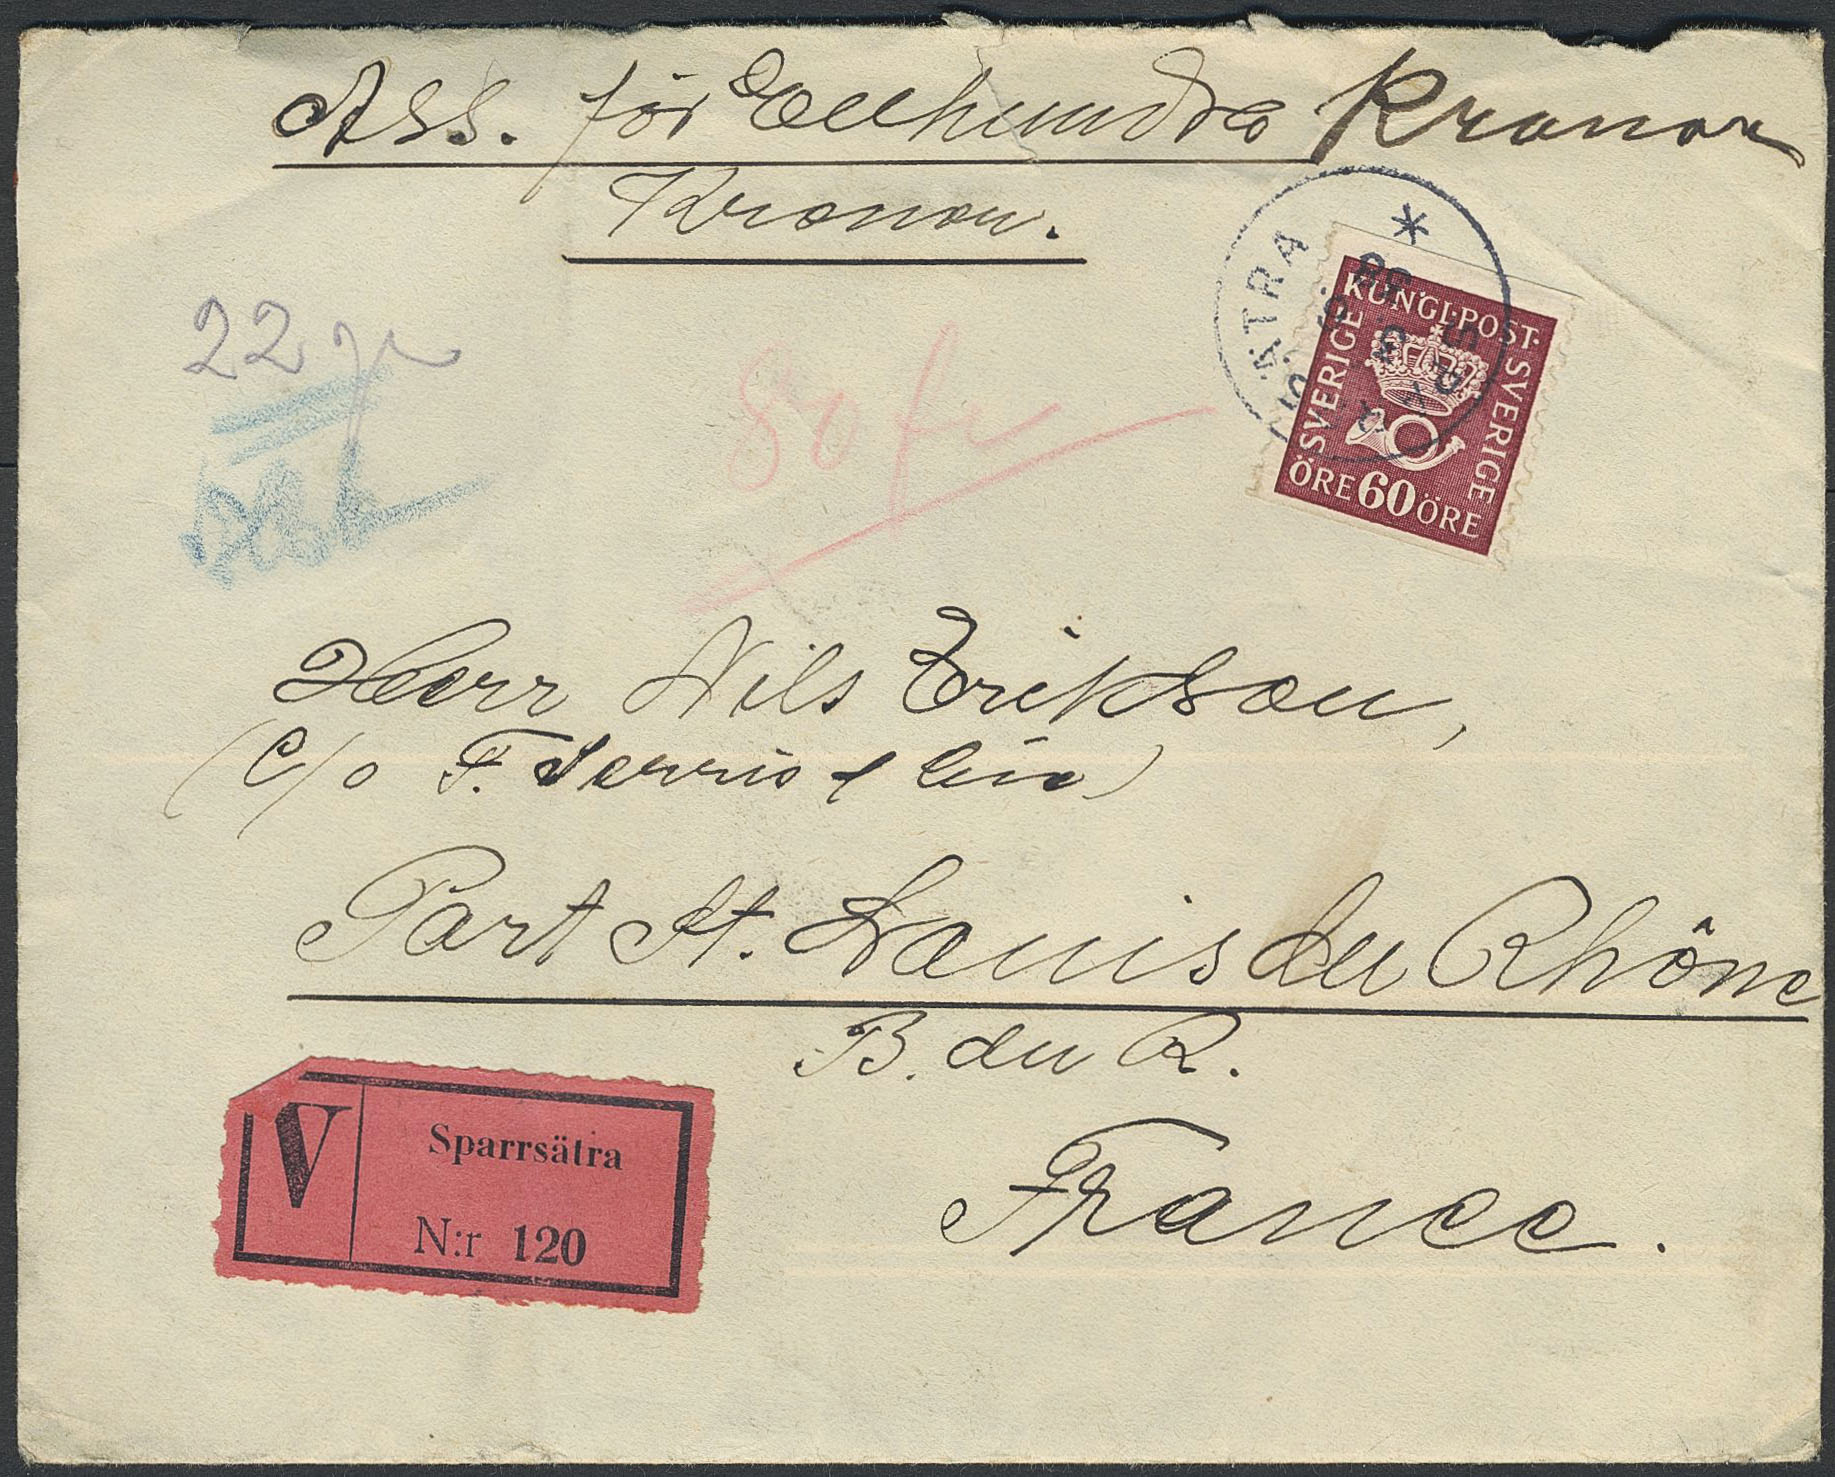 Ass. för Etthundra Kronor
Kronor.
SÄTRA
KUNGL·POST·
SVERIGE
SVERIGE
ÖRE 60 ÖRE
22 gr
80 fr
Herr Nils Erikson,
(C/o F.
Port St. Louis du Rhône
B. du R.
France.
V
Sparrsätra
N:r 120